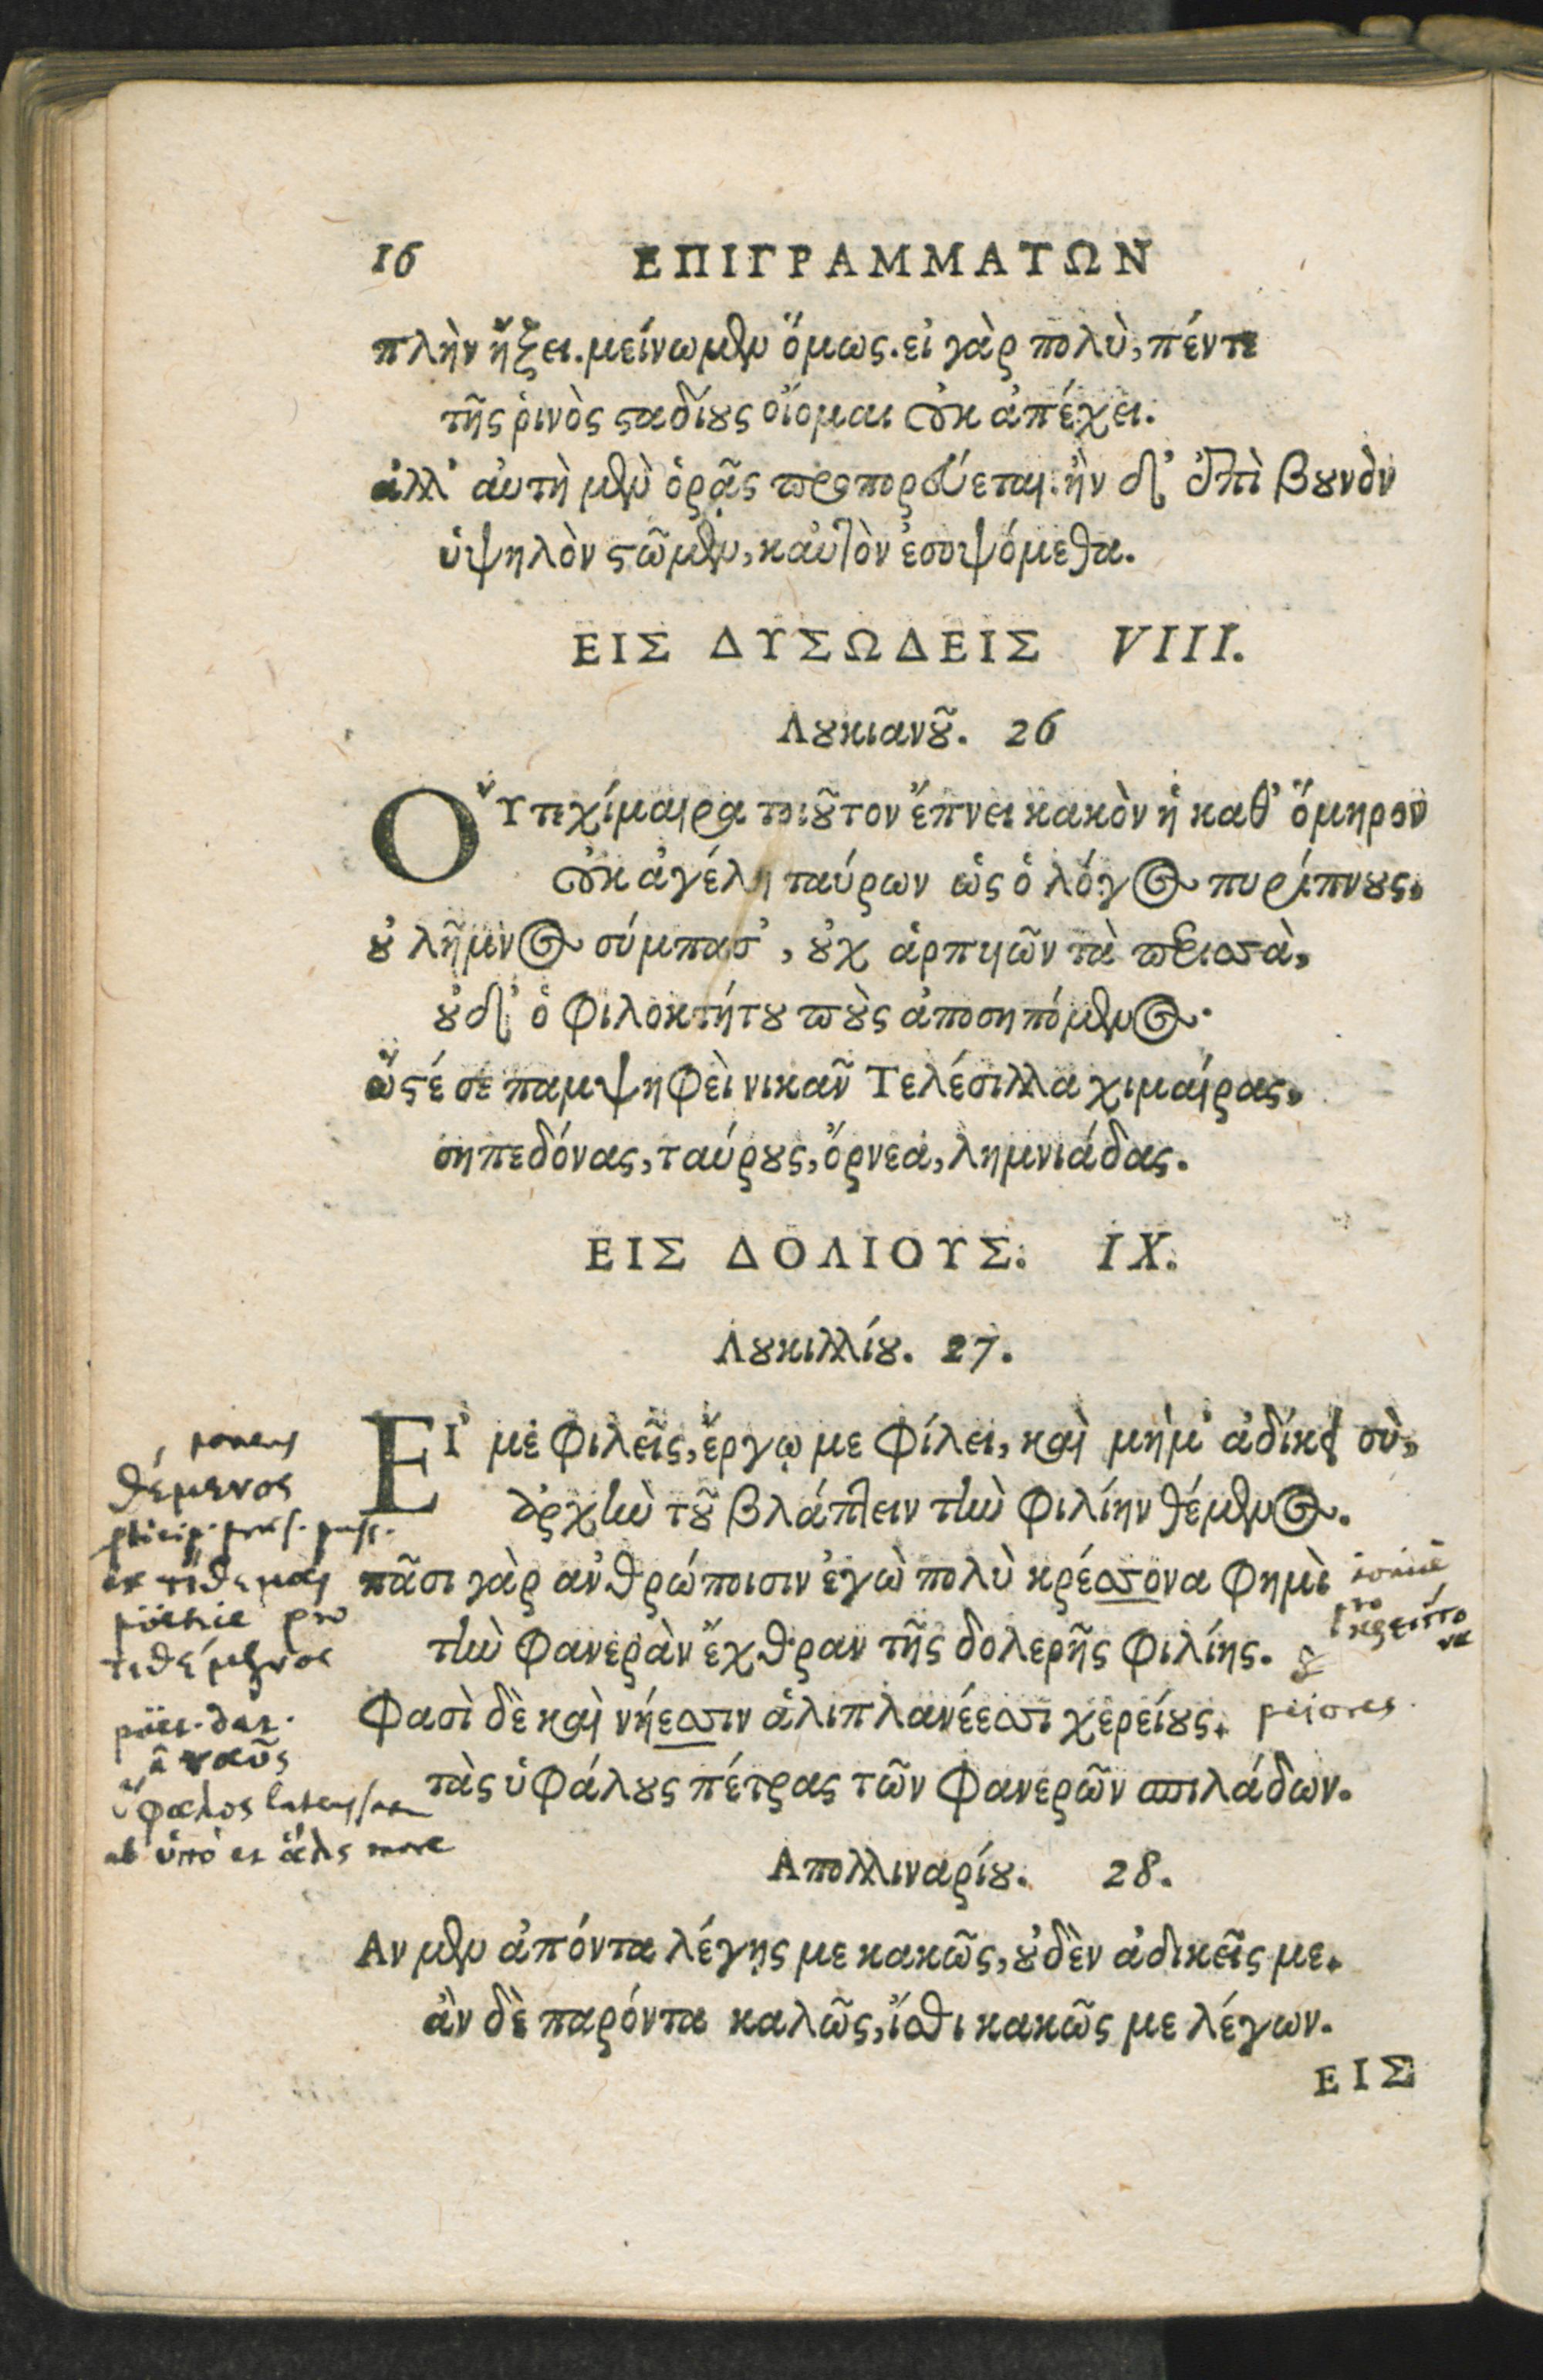 16 ΕΠΙΓΡΑΜΜΑΤΩΝ
πλὴν ἥξει. μείνωμεν ὅμως. εἰ γὰρ πολὺ, πέντε
τῆς ῥινὸς ϛαδίους οἴομαι οὐκ ἀπέχει.
ἀλλ' ἀυτὴ μὲν ὁρᾷς προπορεύεται. ἢν δ' ἐπὶ βουνὸν
ὑψηλὸν ϛῶμεν, καὐτὸν ἐσοψόμεθα.
ΕΙΣ ΔΥΣΩΔΕΙΣ VIII.
Λουκιανοῦ. 26
ΟὔΤε χίμαιρα τοιοῦτον ἔπνει κακὸν ἡ καθ' ὅμηρον
οὐκ ἀγέλη ταύρων ὡς ὁ λόγος πυρίπνους.
οὐ λῆμνος σύμπασ', οὐχ ἁρπυιῶν τὰ περισσὰ,
οὐδ' ὁ φιλοκτήτου ποὺς ἀποσηπόμενος.
ὥϛέ σε παμψηφεὶ νικᾶν Τελέσιλλα χιμαίρας,
σηπεδόνας, ταύρους, ὄρνεα, λημνιάδας.
ΕΙΣ ΔΟΛΙΟΥΣ. IX.
Λουκιλλίου. 27.
ΕἸ με φιλεῖς, ἔργῳ με φίλει, καὶ μὴ μ' ἀδίκει σὺ,
ἀρχὴν τοῦ βλάπτειν τὴν φιλίην θέμενος.
πᾶσι γὰρ ἀνθρώποισιν ἐγὼ πολὺ κρέσσονα φημὶ
τὴν φανερὰν ἔχθραν τῆς δολερῆς φιλίης.
φασὶ δὲ καὶ νήεσσιν ἁλιπλανέεσσι χερείους.
τὰς ὑφάλους πέτρας τῶν φανερῶν σπιλάδων.
Απολλιναρίου. 28.
Αν μὲν ἀπόντα λέγῃς με κακῶς, οὐδὲν ἀδικεῖς με.
ἂν δὲ παρόντα καλῶς, ἴσθι κακῶς με λέγων.
ΕΙΣ
ponens
θέμενος
ex τίθεμαι
pro
τιθέμενος
poet. dat.
à ναῦς
ὕφαλος
ab ὑπὸ et ἅλς mare
ionice
pro
κρείττονα
peiores